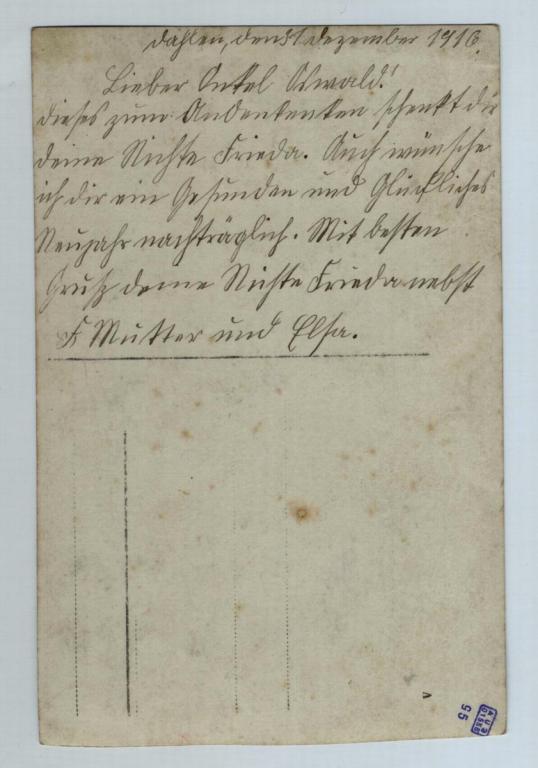 Dahlen, den 31 Dezember 1916.
Lieber Onkel Oswald!
Dieses zum Andenkenken schenkt dir
deine Nichte Frieda. Auch wünsche
ich dir ein Gesunden und Glückliches
Neujahr nachträglich. Mit besten
Gruß deine Nichte Frieda nebst
Mutter und Elsa.
95